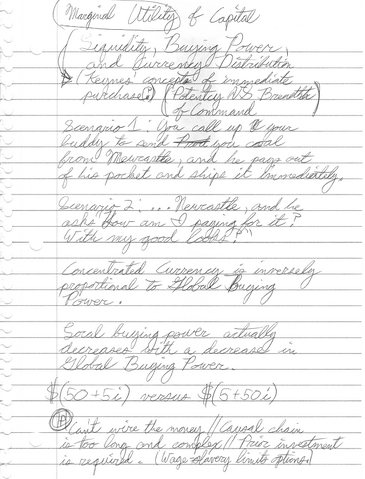 (Marginal Utility of Capital
(Liquidity, Buying Power,
and Currency Distribution
(Keynes' concept of immediate
purchase) (Potentcy VS Breadth
of Command)
Scenario 1: You call up your
buddy to send you coal
from Newcastle, and he pays out
of his pocket and ships it immediatily.
Scenario 2: ... Newcastle, and he
asks "How am I paying for it?
With my good looks?"
Concentrated Currency is inversely
proportional to Global Buying
Power.
Local buying power actually
decreases with a decrease in
Global Buying Power.
$(50+5i) versus $(5+50i)
Can't wire the money // Causal chain
is too long and complex // Prior investment
is required. (Wage slavery limits options.)